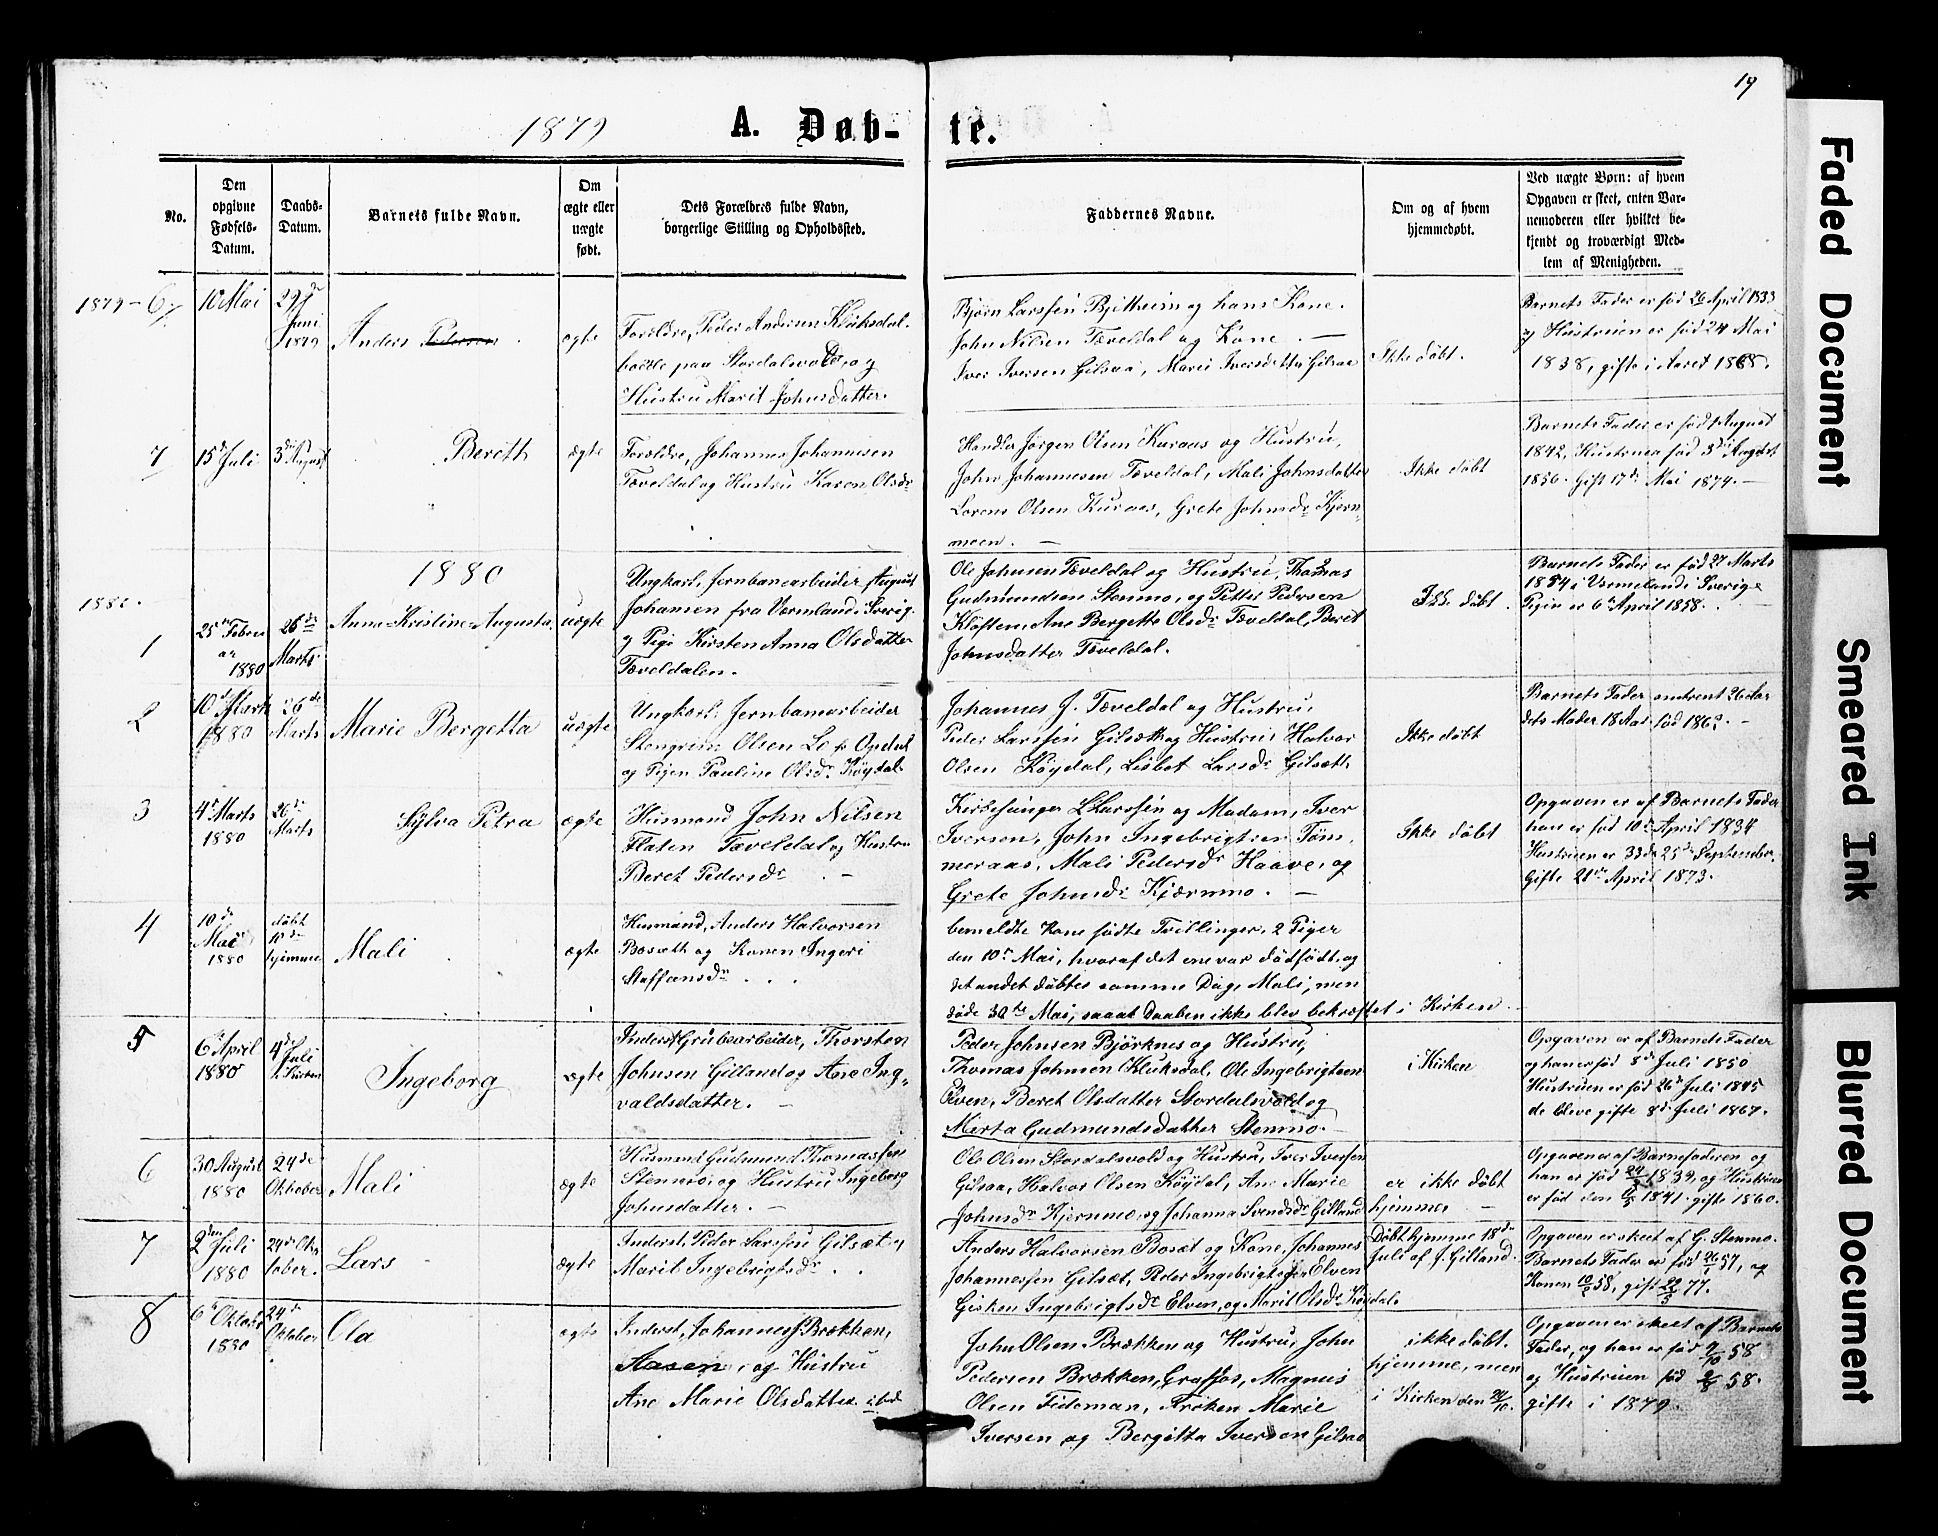 19
1879 A. Døb- te.
No.
Den opgivne Fødsels-Datum.
Daabs-Datum.
Barnets fulde Navn.
Om ægte eller uægte født.
Dets Forældres fulde Navn, borgerlige Stilling og Opholdssted.
Faddernes Navne.
Om og af hvem hjemmedøbt.
Ved uægte Børn: af hvem Opgaven er skeet, enten Barnemoderen eller hvilket bekjendt og troværdigt Medlem af Menigheden.
1879 - 6
10 Mai
29de Juni 1879
Anders Pedersen
ægte
Forældre, Peder Andersen Kluksdal
boede paa Stordalsvold, og
Hustru Marit Johnsdatter.
Bjørn Larssen Bjelkeim og hans Kone.
John Nilsen Tæveldal og Kone.
Iver Iversen Gilsaa, Marit Iversdatter Gilsaa
Ikke døbt.
Barnets Fader er fød 26 April 1833
og Hustruen er fød 24 Mai
1838, gifte i Aaret 1868.
7
15de Juli
3de August
Bereth
ægte
Forældre, Johannes Johannesen
Tæveldal og Hustru Karen Olsdr
Handler Jørgen Olsen Kuraas og Hustru,
John Johannesen Tæveldal, Mali Johnsdatter
Lorens Olsen Kuraas, Grete Johnsdr Kjern-
moen.
Ikke døbt
Barnets Fader er født August
1842, Hustruen fød 3de August
1850. Gift 17de Mai 1874.
1880
1880.
1
25de Februar 1880
26de Marts
Anna Kristine Augusta
uægte
Ungkarl, Jernbanearbeider August
Johansen fra Værmland i Sverig
og Pige Kirsten Anna Olsdatter
Tæveldalen.
Ole Johnsen Tæveldal og Hustru, Thomas
Gudmundsen Stenmo, og Petter Pedersen
Kloften, Ane Bergette Olsdr Tæveldal, Beret
Johnsdatter Tæveldal.
Ikke døbt.
Barnets Fader er fød 27 Marts
1854 i Vermeland i Sverige
Pigen er 6te April 1858.
2
10de Marts 1880
26de Marts
Marie Bergetta
uægte
Ungkarl, Jernbanearbeider
Stengrim Olsen Lo fr Opdal
og Pigen Pauline Olsdr Køydal
Johannes J. Tæveldal og Hustru,
Peder Larssen Gilsæth og Hustru, Halvor
Olsen Køydal, Lisbet Larsdr Gilsæth
Ikke døbt
Barnets Fader omtrent 26 Aar
dets Moder 18 Mai fød 1862.
3
4de Marts 1880
26de Marts
Sylva Petra
ægte
Husmand John Nilsen
Flaten Tæveldal og Hustru
Beret Pedersdr
Kirkesanger L Larssen og Madam, Iver
Iversen, John Ingebrigtsen Tøm-
meraas, Mali Pedersdr Haave, og
Grete Johnsdr Kjærnmo.
Ikke døbt
Opgaven er af Barnets Fader
han er fød 10de April 1834
Hustruen er 33 de 25de September.
Gifte 21de April 1873.
4
10de Mai 1880
døbt 10de hjemme
Mali
ægte
Husmand, Anders Halvorsen
Bosæth og Konen Ingeri
Staffansdr
bemeldte Kone fødte Tvillinger, 2 Piger
den 10de Mai, hvoraf det ene var dødfødt, og
det andet døbtes samme Dag, Mali, men
døde 30te Mai, saaat Daaben ikke blev bekræftet i Kirken
5
6te April 1880
4de Juli i Kirken
Ingeborg
ægte
Inderst Grubearbeider, Thorsten
Johnsen Gilland og Ane Ing-
valdsdatter.
Peder Johnsen Björknes og Hustru,
Thomas Johnsen Kluksdal, Ole Ingebrigtsen
Elven, Beret Olsdatter Stordalsvold og
Merta Gudmundsdatter Stenmo.
i Kirken
Opgaven er af Barnets Fader
og han er fød 8de Juli 1850
Hustruen er fød 26de Juli 1845
de bleve gifte 8de Juli 1867.
6
30 August 1880
24de Oktober
Mali
ægte
Husmand Gudmund Thomassen
Stenmo, og Hustru Ingeborg
Johnsdatter.
Ole Olsen Stordalsvold og Hustru, Iver Iversen
Gilsaa, Halvor Olsen Køydal, Ane Marie
Johnsdr Kjernmo, og Johanna Svendsdr Gilland
er ikke døbt
hjemme
Opgaven er af Barnefaderen og
han er fød 24/5 1839, og Hustruen
er fød den 6/5 1841. gifte 1860.
7
2den Juli 1880
24de Oktober.
Lars
ægte
Inderst, Peder Larssen Gilsæt og
Marit Ingebrigtsdr
Anders Halvorsen Bosæt og Kone, Johannes
Johannessen Gilsæt, Peder Ingebrigtsen Elven
Gisken Ingebrigtsdr Elven, og Marit Olsdr Køydal.
Døbt hjemme 18de
Juli af J. Gilland.
Opgaven er skeet af G. Stenmo.
Barnets Fader er fød 26/1 57, og
Konen 10/2 58, gift 22/3 77.
8
6te Oktober 1880
24de Oktober
Ola
ægte
Inderst, Johannes J. Brækken,
Aasen, og Hustru
Ane Marie Olsdatter ibd
John Olsen Brækken og Hustru, John
Pedersen Brækken, Graffos, Magnus
Olsen Fideman, Frøken Marie
Iversen og Bergitta Iversen Gilsaa
ikke døbt
hjemme, men
i Kirken den 24/10.
Opgaven er skeet af Barnets
Fader, og han er fød 9/10 58
og Hustruen fød 2/8 58.
gifte i 1879.
Faded Document
Smeared Ink
Blurred Document